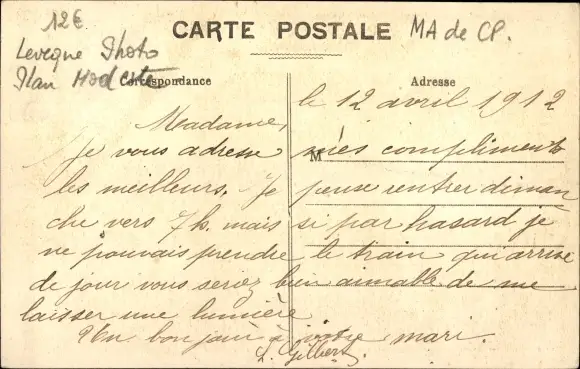 12€
CARTE POSTALE
MA de CP.
Leveque Photo
Ilan Modeste
Correspondance
Adresse
le 12 avril 1912
Madame,
M
je vous adresse mes compliments
les meilleurs. Je pense rentrer diman
che vers 7h. mais si par hasard je
ne pouvais prendre le train qui arrive
de jour vous seriez bien aimable de me
laisser une lumière
Un bonjour à votre mari.
L. Gilbert.